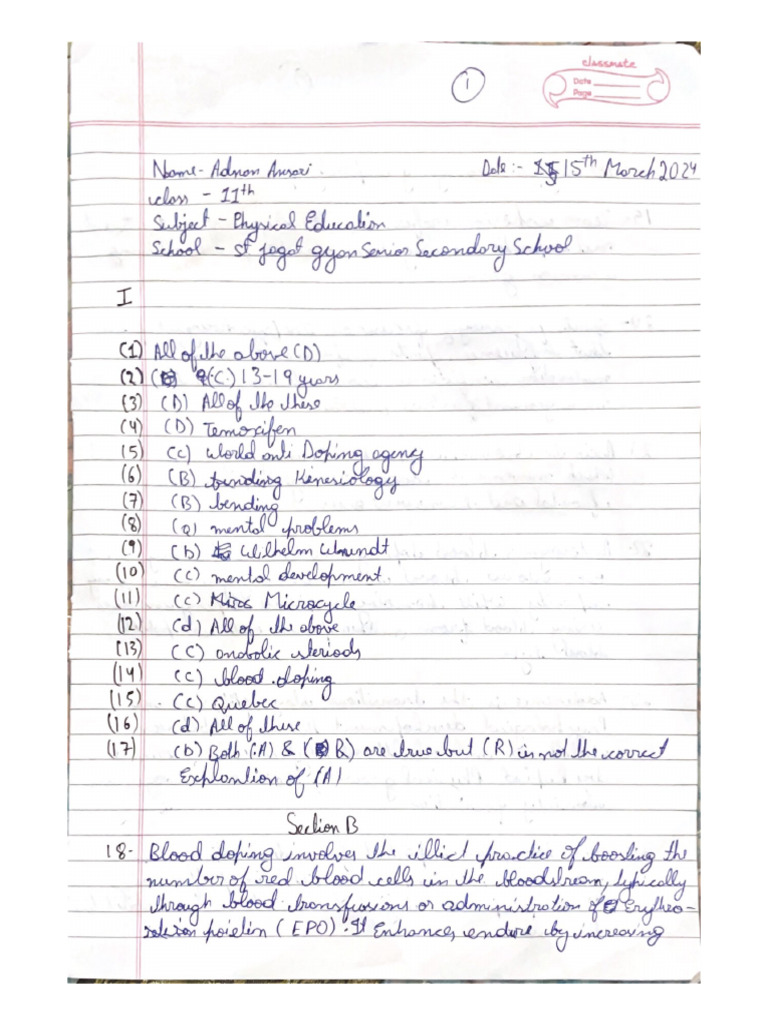 1
classmate
Date
Page
Name- Adnan Ansari. Date :- 15th March 2024
class - 11th
Subject - Physical Education
School - St Jagat gyan Senior Secondary School
I
(1) All of the above (D)
(2) (C) 13-19 years
(3) (D) All of the these
(4) (D) Temoxifen
(5) (c) World anti Doping agency
(6) (B) Kinesiology
(7) (B) bending
(8) (a) mental problems
(9) (b) Wilhelm Wundt
(10) (c) mental development
(11) (c) Microcycle
(12) (d) All of the above
(13) (C) anabolic steriods
(14) (c) blood doping
(15) (c) Quebec
(16) (d) All of these
(17) (b) Both (A) & (R) are true but (R) is not the correct
Explantion of (A)
Section B
18- Blood doping involves the illict practice of boosting the
number of red blood cells in the bloodstream, typically
through blood transfusions or administration of Erythro-
poietin (EPO). It Enhances endure by increasing